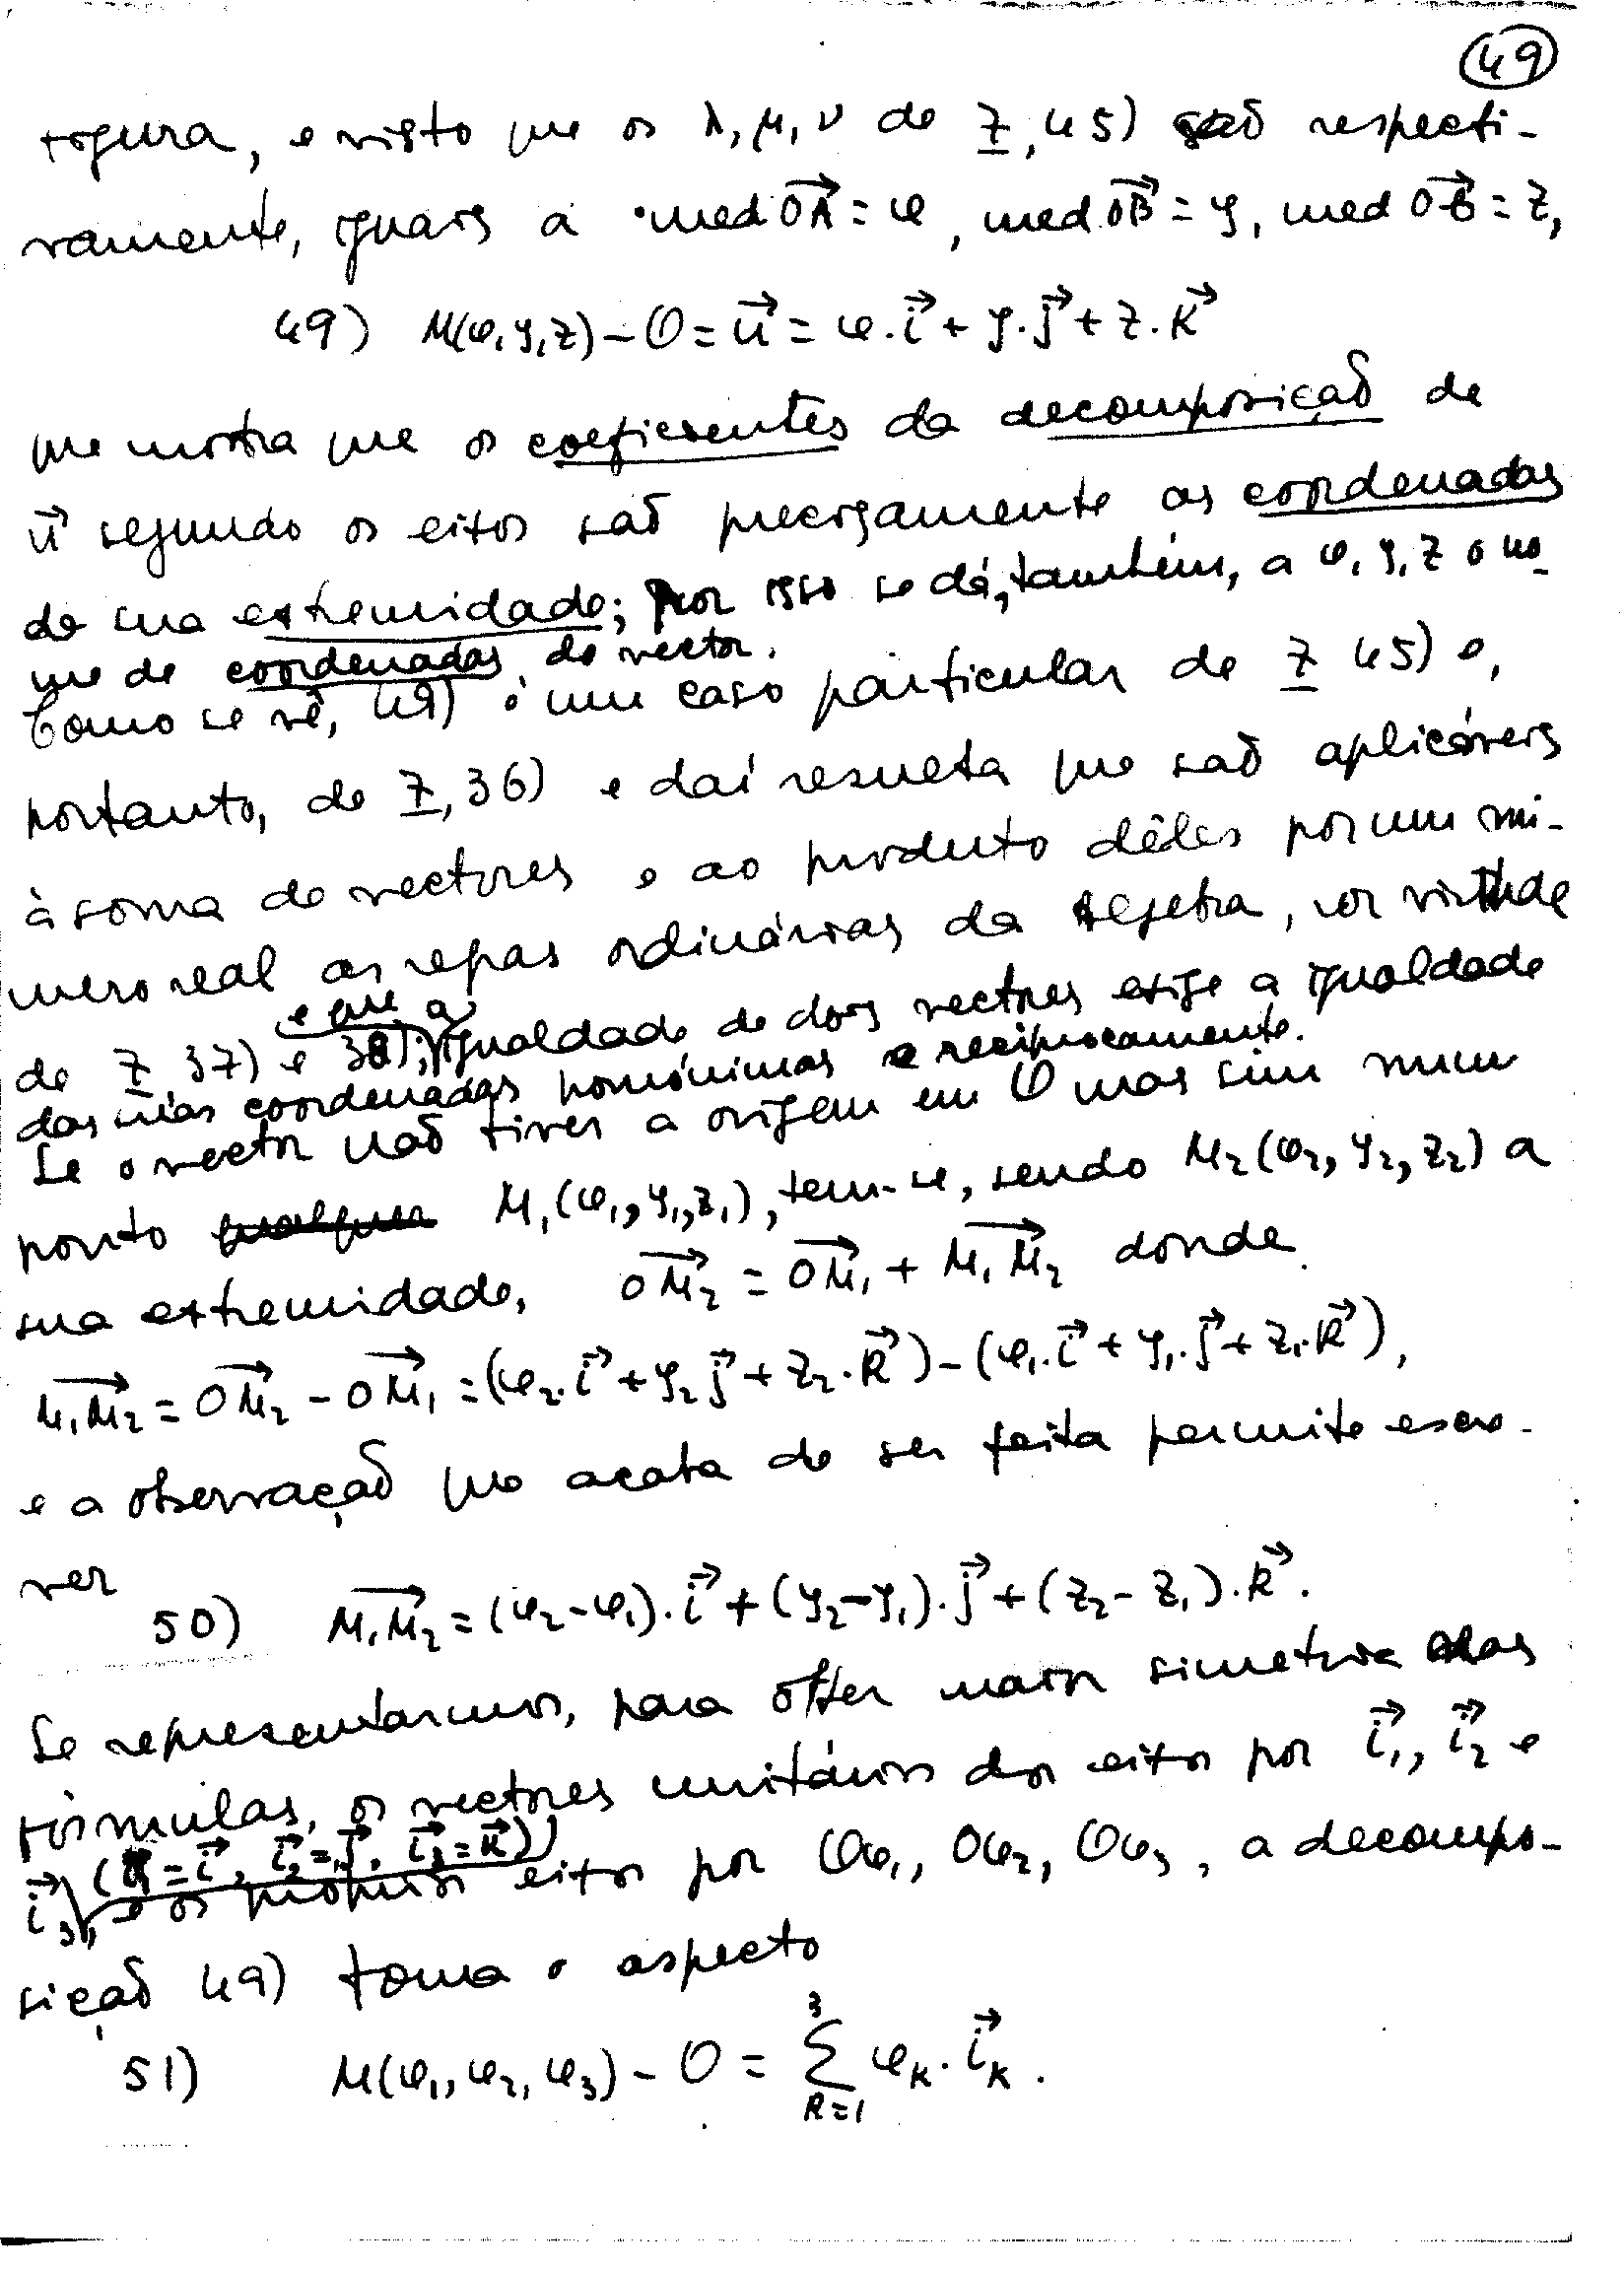 49
figura, e visto que os λ, μ, ν de 7, 45) são respecti-
vamente, iguais a med OA⃗ = x, med OB⃗ = y, med OC⃗ = z,
49) M(x, y, z) - O = u⃗ = x . i⃗ + y . j⃗ + z . k⃗
que mostra que os coeficientes da decomposição de
u⃗ segundo os eixos são precisamente as coordenadas
da sua extremidade; por isso se dá, também, a x, y, z o no-
me de coordenadas do vector.
Como se vê, 49) é um caso particular de 7 45) e,
portanto, de 7, 36) e daí resulta que são aplicáveis
à soma de vectores e ao produto dêles por um nú-
mero real as regras ordinárias da Algebra, por virtude
de 7 37) e 38); e que a igualdade de dois vectores exige a igualdade
das suas coordenadas homónimas e reciprocamente.
Se o vector não tiver a origem em O mas sim num
ponto M₁(x₁, y₁, z₁), tem-se, sendo M₂(x₂, y₂, z₂) a
sua extremidade, OM₂⃗ = OM₁⃗ + M₁M₂⃗ donde
M₁M₂⃗ = OM₂⃗ - OM₁⃗ = (x₂ . i⃗ + y₂ j⃗ + z₂ . k⃗) - (x₁ . i⃗ + y₁ . j⃗ + z₁ . k⃗),
e a observação que acaba de ser feita permite escre-
ver
50) M₁M₂⃗ = (x₂ - x₁) . i⃗ + (y₂ - y₁) . j⃗ + (z₂ - z₁) . k⃗.
Se representarmos, para obter maior simetria das
fórmulas, os vectores unitários dos eixos por i⃗₁, i⃗₂ e
i⃗₃, (i⃗₁ = i⃗, i⃗₂ = j⃗, i⃗₃ = k⃗) e os próprios eixos por Ox₁, Ox₂, Ox₃, a decompo-
sição 49) toma o aspecto
51) M(x₁, x₂, x₃) - O = ∑³ₖ₌₁ xₖ . i⃗ₖ.